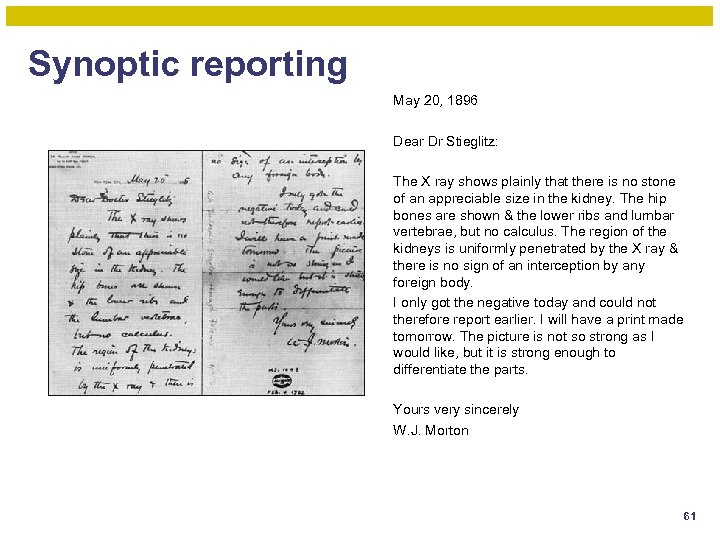 Synoptic reporting
May 20, 1896
Dear Dr Stieglitz:
The X ray shows plainly that there is no stone
of an appreciable size in the kidney. The hip
bones are shown & the lower ribs and lumbar
vertebrae, but no calculus. The region of the
kidneys is uniformly penetrated by the X ray &
there is no sign of an interception by any
foreign body.
I only got the negative today and could not
therefore report earlier. I will have a print made
tomorrow. The picture is not so strong as I
would like, but it is strong enough to
differentiate the parts.
Yours very sincerely
W.J. Morton
May 20
Dear Doctor Stieglitz
The X ray shows
plainly that there is no
stone of an appreciable
size in the kidney. The
hip bones are shown
& the lower ribs and
the lumbar vertebrae,
but no calculus.
The region of the kidneys
is uniformly penetrated
by the X ray & there is
no sign of an interception by
any foreign body.
I only got the
negative today and could
not therefore report earlier
I will have a print made
tomorrow. The picture
is not so strong as I
would like but it is strong
enough to differentiate
the parts.
Yours very sincerely
W. J. Morton
61